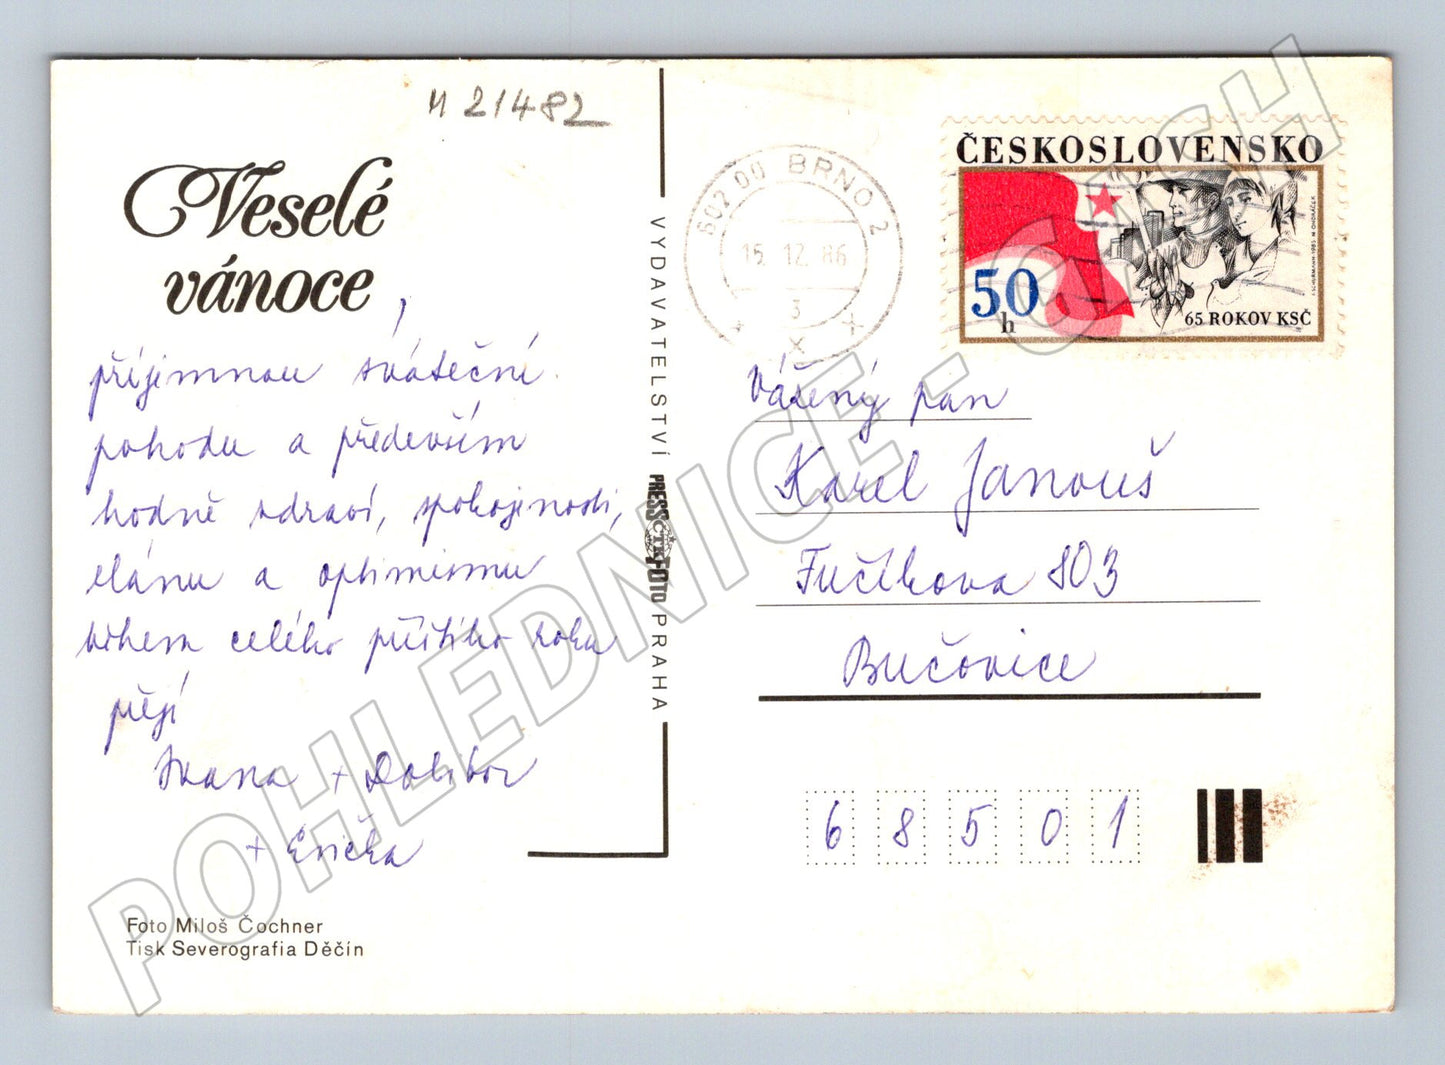 M 21482
Veselé
vánoce,
příjemnou sváteční
pohodu a především
hodně zdraví, spokojenosti,
elánu a optimismu
během celého příštího roku
přejí
Ivana + Dalibor
+ Evička
Foto Miloš Čochner
Tisk Severografia Děčín
VYDAVATELSTVÍ PRESSFOTO PRAHA
ČTK
602 00 BRNO 2
15.12.86
3
x
ČESKOSLOVENSKO
50
h
65 ROKOV KSČ
I. SCHURMANN-1985-M. ONDRÁČEK
Vážený pan
Karel Janouš
Fučíkova 803
Bučovice
6 8 5 0 1
POHLEDNICE - CASH